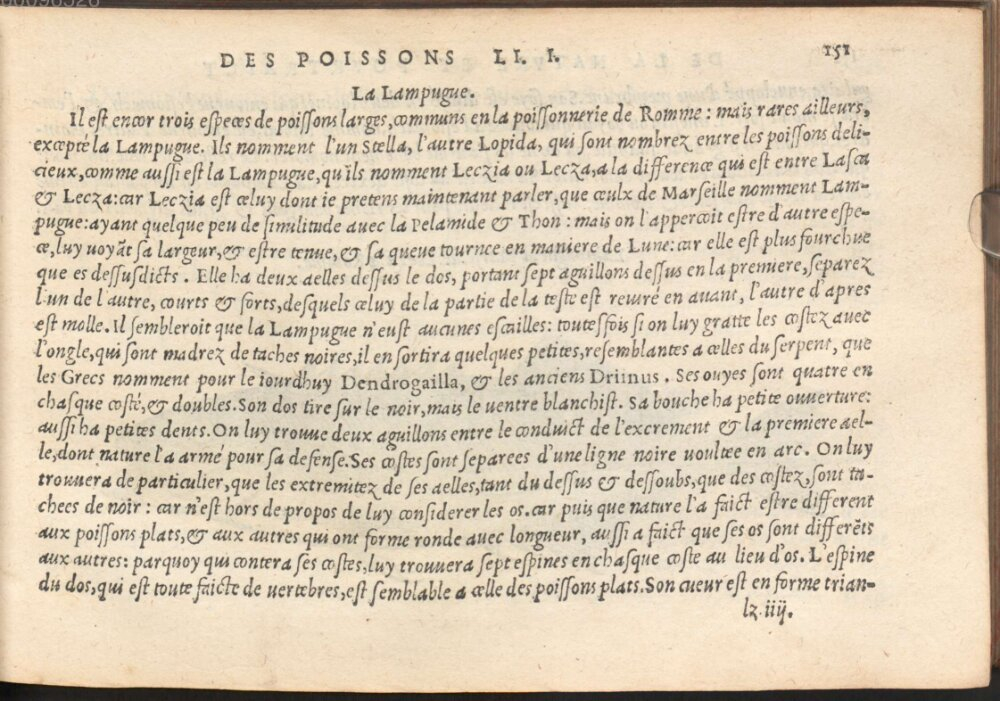 DES POISSONS LI. I. 151
La Lampugue.
Il est encor trois especes de poissons larges, communs en la poissonnerie de Romme : mais rares ailleurs,
excepté la Lampugue. Ils nomment l'un Stella, l'autre Lopida, qui sont nombrez entre les poissons deli-
cieux, comme aussi est la Lampugue, qu'ils nomment Leczia ou Lecza, a la difference qui est entre Lasca
& Lecza: car Leczia est celuy dont ie pretens maintenant parler, que ceulx de Marseille nomment Lam-
pugue: ayant quelque peu de similitude avec la Pelamide & Thon : mais on l'apperçoit estre d'autre espe-
ce, luy voyãt sa largeur, & estre tenue, & sa queue tournee en maniere de Lune: car elle est plus fourchue
que es dessusdicts . Elle ha deux aelles dessus le dos, portant sept aguillons dessus en la premiere, separez
l'un de l'autre, courts & forts, desquels celuy de la partie de la teste est reviré en avant, l'autre d'apres
est molle. Il sembleroit que la Lampugue n'eust aucunes escailles: toutesfois si on luy gratte les costez avec
l'ongle, qui sont madrez de taches noires, il en sortira quelques petites, resemblantes a celles du serpent, que
les Grecs nomment pour le iourdhuy Dendrogailla, & les anciens Driinus . Ses ouyes sont quatre en
chasque costé, & doubles. Son dos tire sur le noir, mais le ventre blanchist. Sa bouche ha petite ouverture:
aussi ha petites dents. On luy trouve deux aguillons entre le conduict de l'excrement & la premiere ael-
le, dont nature l'a armé pour sa defense. Ses costes sont separees d'une ligne noire voultee en arc. On luy
trouvera de particulier, que les extremitez de ses aelles, tant du dessus & dessoubs, que des costez, sont ta-
chees de noir : car n'est hors de propos de luy considerer les os. car puis que nature l'a faict estre different
aux poissons plats, & aux autres qui ont forme ronde avec longueur, aussi a faict que ses os sont differẽts
aux autres: parquoy qui contera ses costes, luy trouvera sept espines en chasque coste au lieu d'os. L'espine
du dos, qui est toute faicte de vertebres, est semblable a celle des poissons plats. Son cueur est en forme trian-
lz iiij.